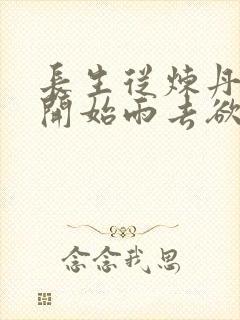 長生從煉丹
開始雨去欲
念念我思